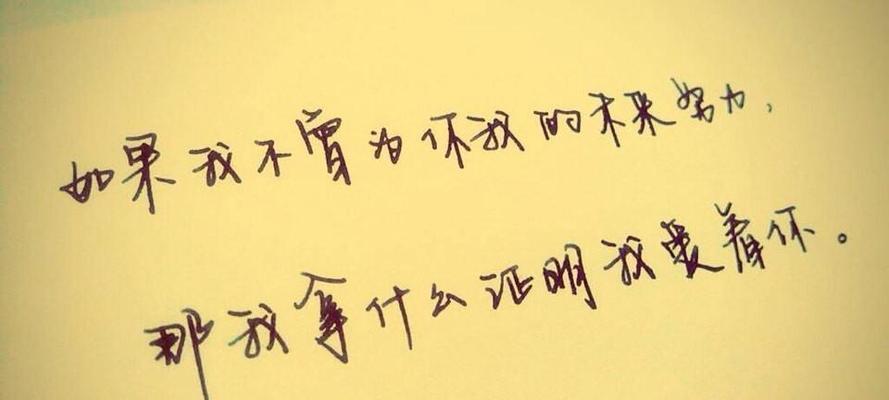 如果我不曾为你我的未来努力,
那我拿什么证明我爱着你。